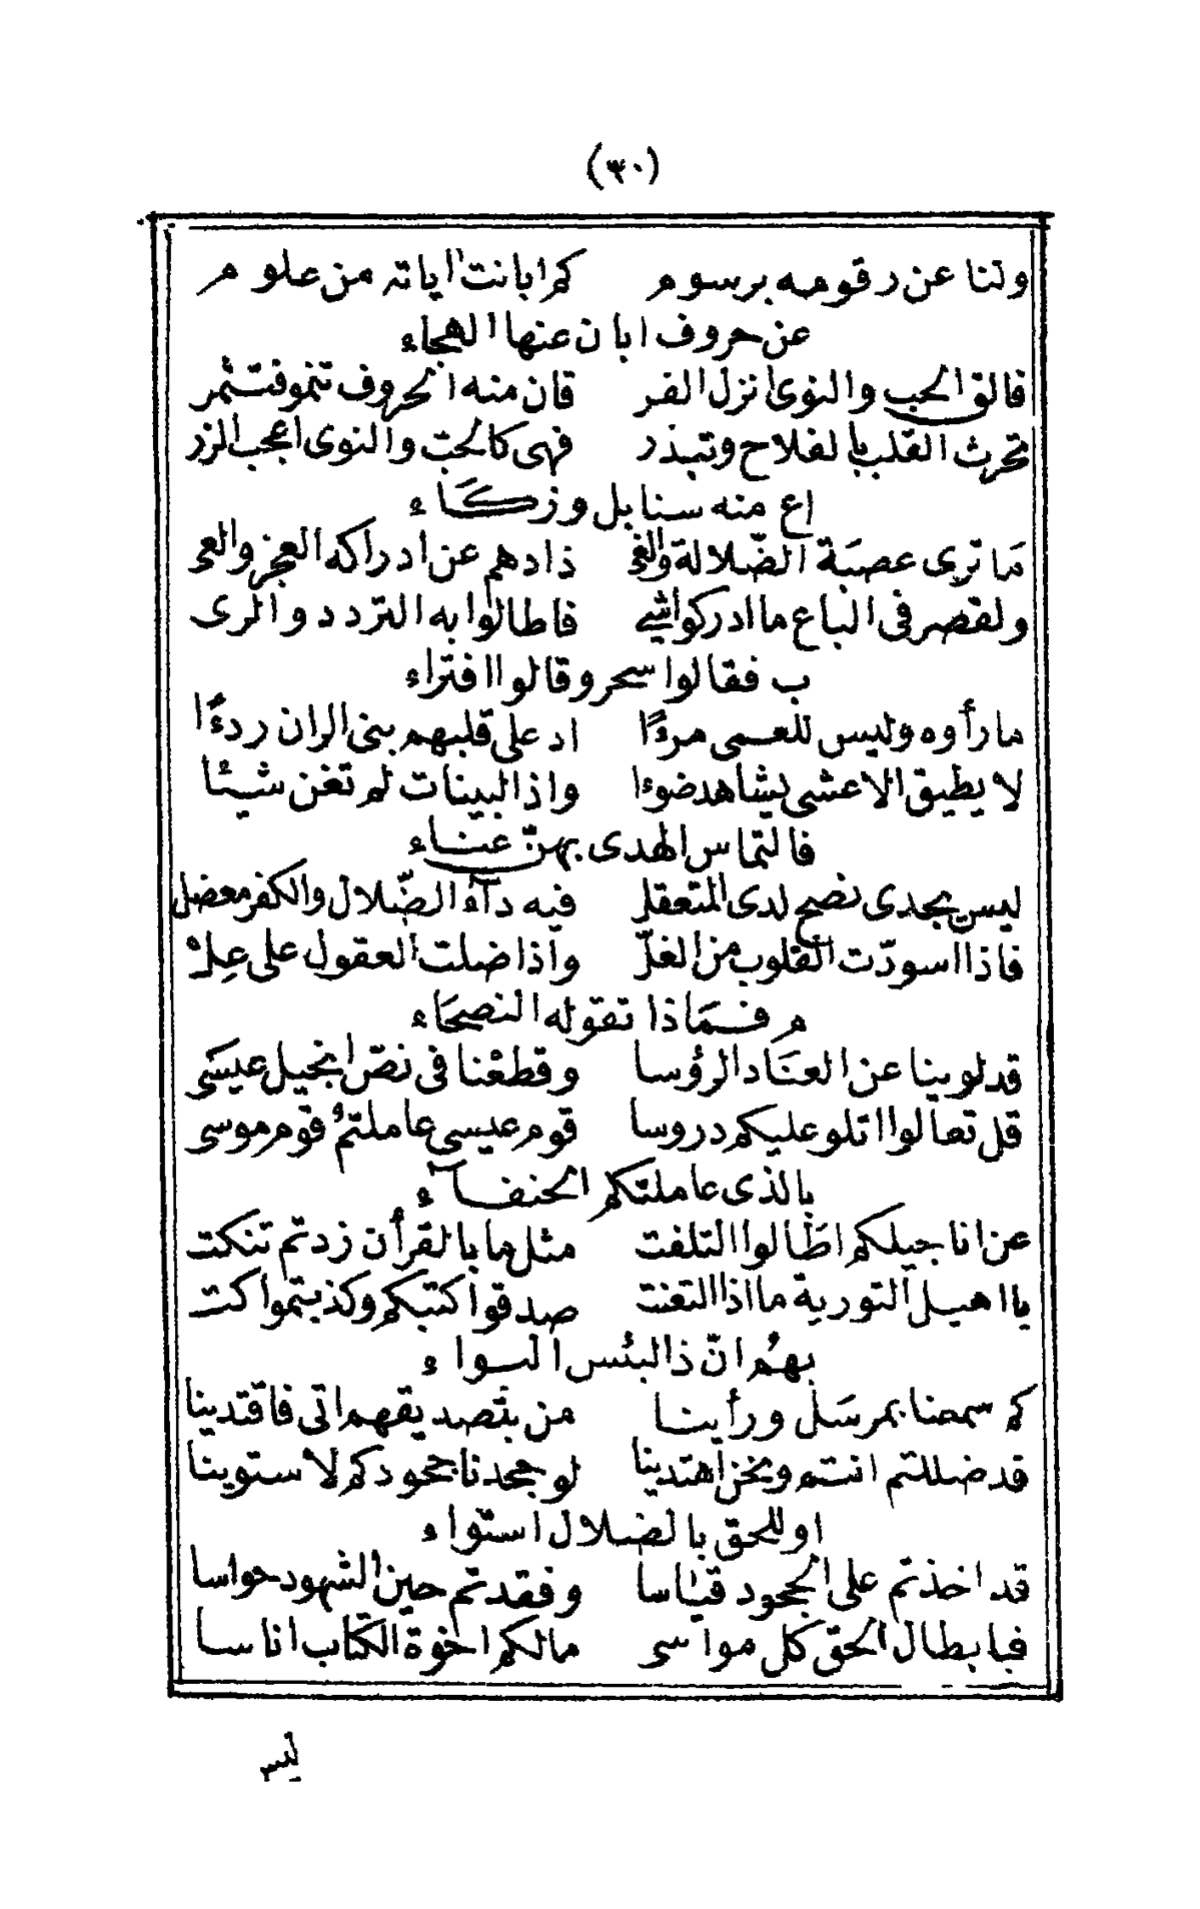 (٣٠)
ولنا عن رقومه برسوم كم ابانت اياته من علوم
عن حروف ابان عنها الهجاء
فالق الحب والنوى انزل القر قان منه الحروف تنمو فتثمر
تحرث القلب بالفلاح وتبذر فهى كالحب والنوى اعجب الزر
اع منه سنابل وزكاء
ما ترى عصبة الضّلالة والغى ذادهم عن ادراكه العجز والعى
ولقصر فى الباع ما ادركوا شى فاطالوا به التردد والرى
ب فقالوا سحر وقالوا افتراء
ما رأوه وليس للعمى مرءًا اد على قلبهم بنى الران ردءًا
لا يطيق الاعشى يشاهد ضوءا واذا البينات لم تغن شيئا
فالتماس الهدى بهنّ عناء
ليس يجدى نصح لدى المتعقل فيه دآء الضّلال والكفر معضل
فاذا اسودّت القلوب من الغلّ واذا ضلت العقول على عِلْ
م فماذا تقوله النصحاء
قد لوينا عن العناد الرؤسا وقطعْنا فى نصّ انجيل عيسَى
قل تعالوا اتلو عليكم دروسا قوم عيسى عاملتمُ قوم موسى
بالذى عاملتكم الحنفآء
عن اناجيلكم اطالوا التلفت مثل ما بالقرأن زدتم تنكت
يا اهيل التورية ما اذا التعنت صدقوا كتبكم وكذبتموا كت
بهُم انّ ذا لبئس البواء
كم سمعنا بمرسَل ورأينا من بتصديقهم اتى فاقتدينا
قد ضللتم انتم ونحن اهتدينا لو جحدنا جحودكم لاستوينا
او للحق بالضلال استواء
قد اخذتم على الجحود قياسا وفقدتم حين الشهود حواسا
فبابطال الحق كل مواسى مالكم اخوة الكتاب اناسا
ليس